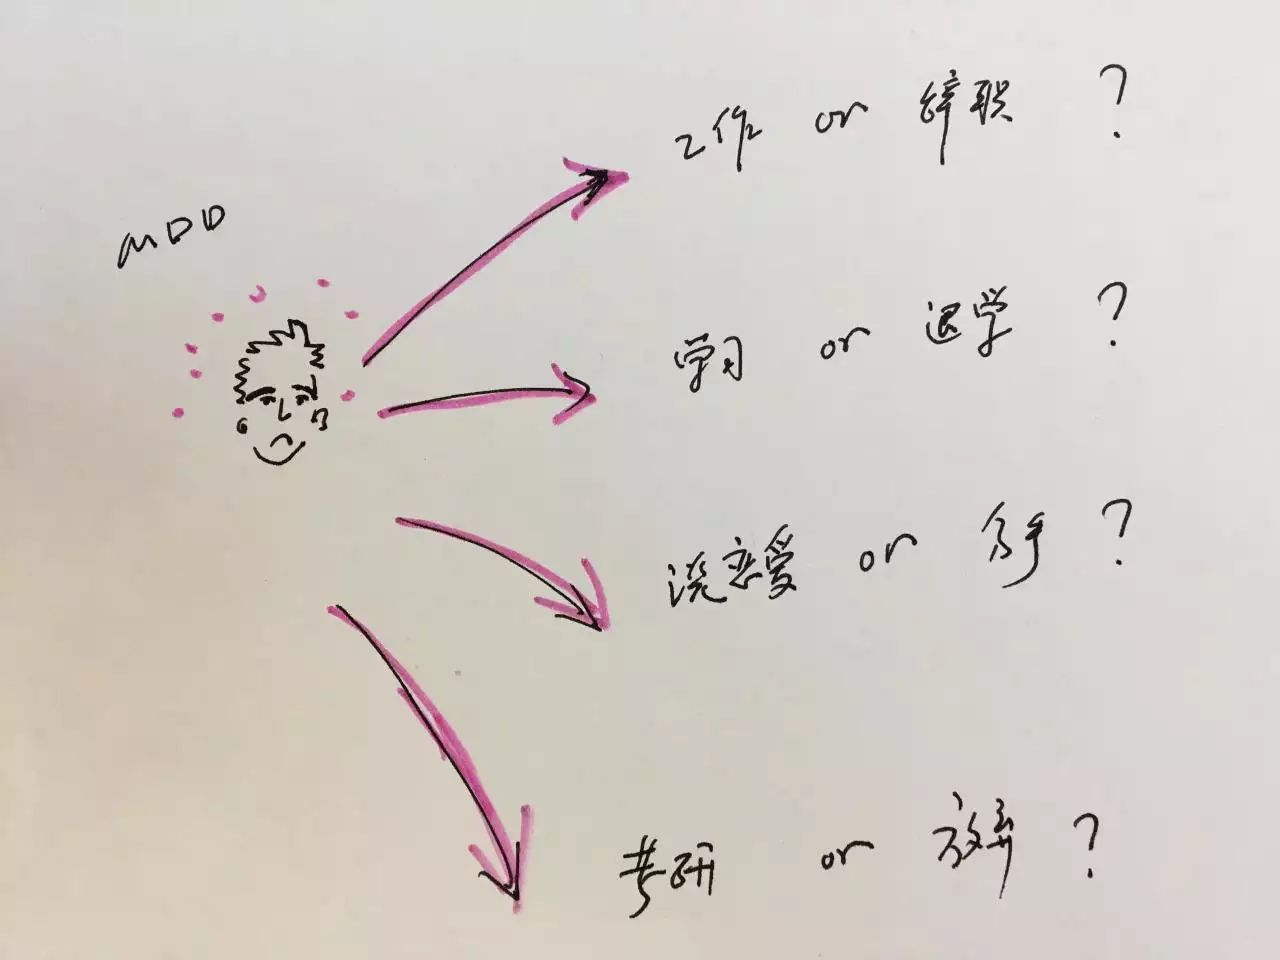 MDD
工作 or 辞职 ?
学习 or 退学 ?
谈恋爱 or 分手 ?
考研 or 放弃 ?